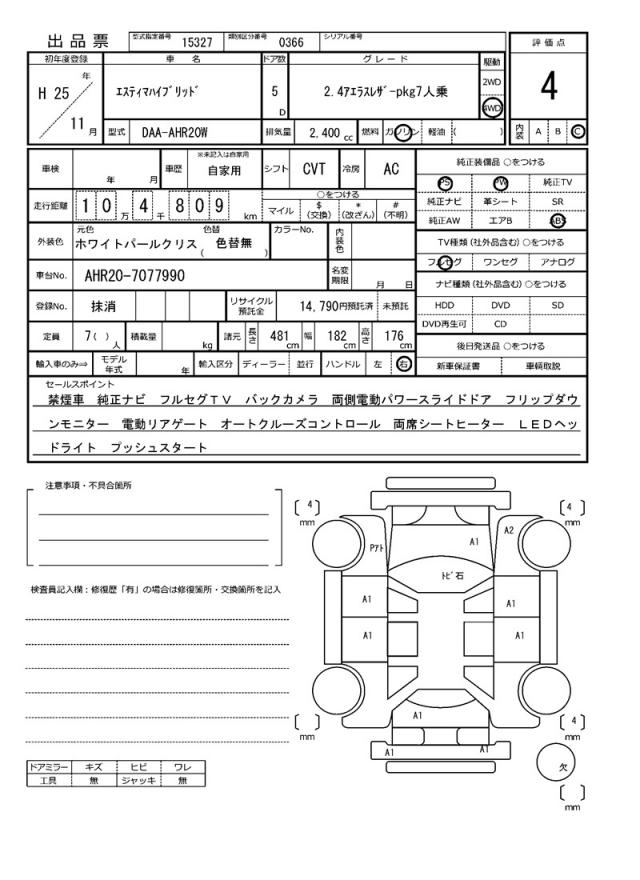 出品票 型式指定番号 15327 類別区分番号 0366 シリアル番号
評価点
4
内装 A B C
初年度登録 車名 ドア数 グレード 駆動
H 25 年 11 月
エスティマハイブリッド 5 D 2.4アエラスレザｰpkg7人乗 2WD 4WD
型式 DAA-AHR20W 排気量 2,400 cc 燃料 ガソリン 軽油 ( )
車検 年 月 車歴 ※未記入は自家用 自家用 シフト CVT 冷房 AC
走行距離 10万4千809 km
○をつける
マイル $(交換) *(改ざん) #(不明)
外装色 元色 ホワイトパールクリス 色替 ( 色替無 ) カラーNo. 内装色
車台No. AHR20-7077990 名変期限 月 日
登録No. 抹消 リサイクル預託金 14,790円預託済 未預託
定員 7( ) 人 積載量 kg 諸元 長さ 481 cm 幅 182 cm 高さ 176 cm
輸入車のみ⇒ モデル年式 年 輸入区分 ディーラー 並行 ハンドル 左 右
純正装備品 ○をつける
PS PW 純正TV
純正ナビ 革シート SR
純正AW エアB ABS
TV種類(社外品含む)○をつける
フルセグ ワンセグ アナログ
ナビ種類(社外品含む)○をつける
HDD DVD SD
DVD再生可 CD
後日発送品 ○をつける
新車保証書 車輌取説
セールスポイント
禁煙車 純正ナビ フルセグTV バックカメラ 両側電動パワースライドドア フリップダウ
ンモニター 電動リアゲート オートクルーズコントロール 両席シートヒーター LEDヘッ
ドライト プッシュスタート
注意事項・不具合箇所
検査員記入欄：修復歴「有」の場合は修復箇所・交換箇所を記入
ドアミラー キズ ヒビ ワレ
工具 無 ジャッキ 無
[ 4 ] mm
[ 4 ] mm
A1 A2
Pｱﾄ
ﾄﾋﾞ石
A1 A1
A1 A1
A1
[ ] mm
[ 4 ] mm
A1 A1
欠
[ ] mm